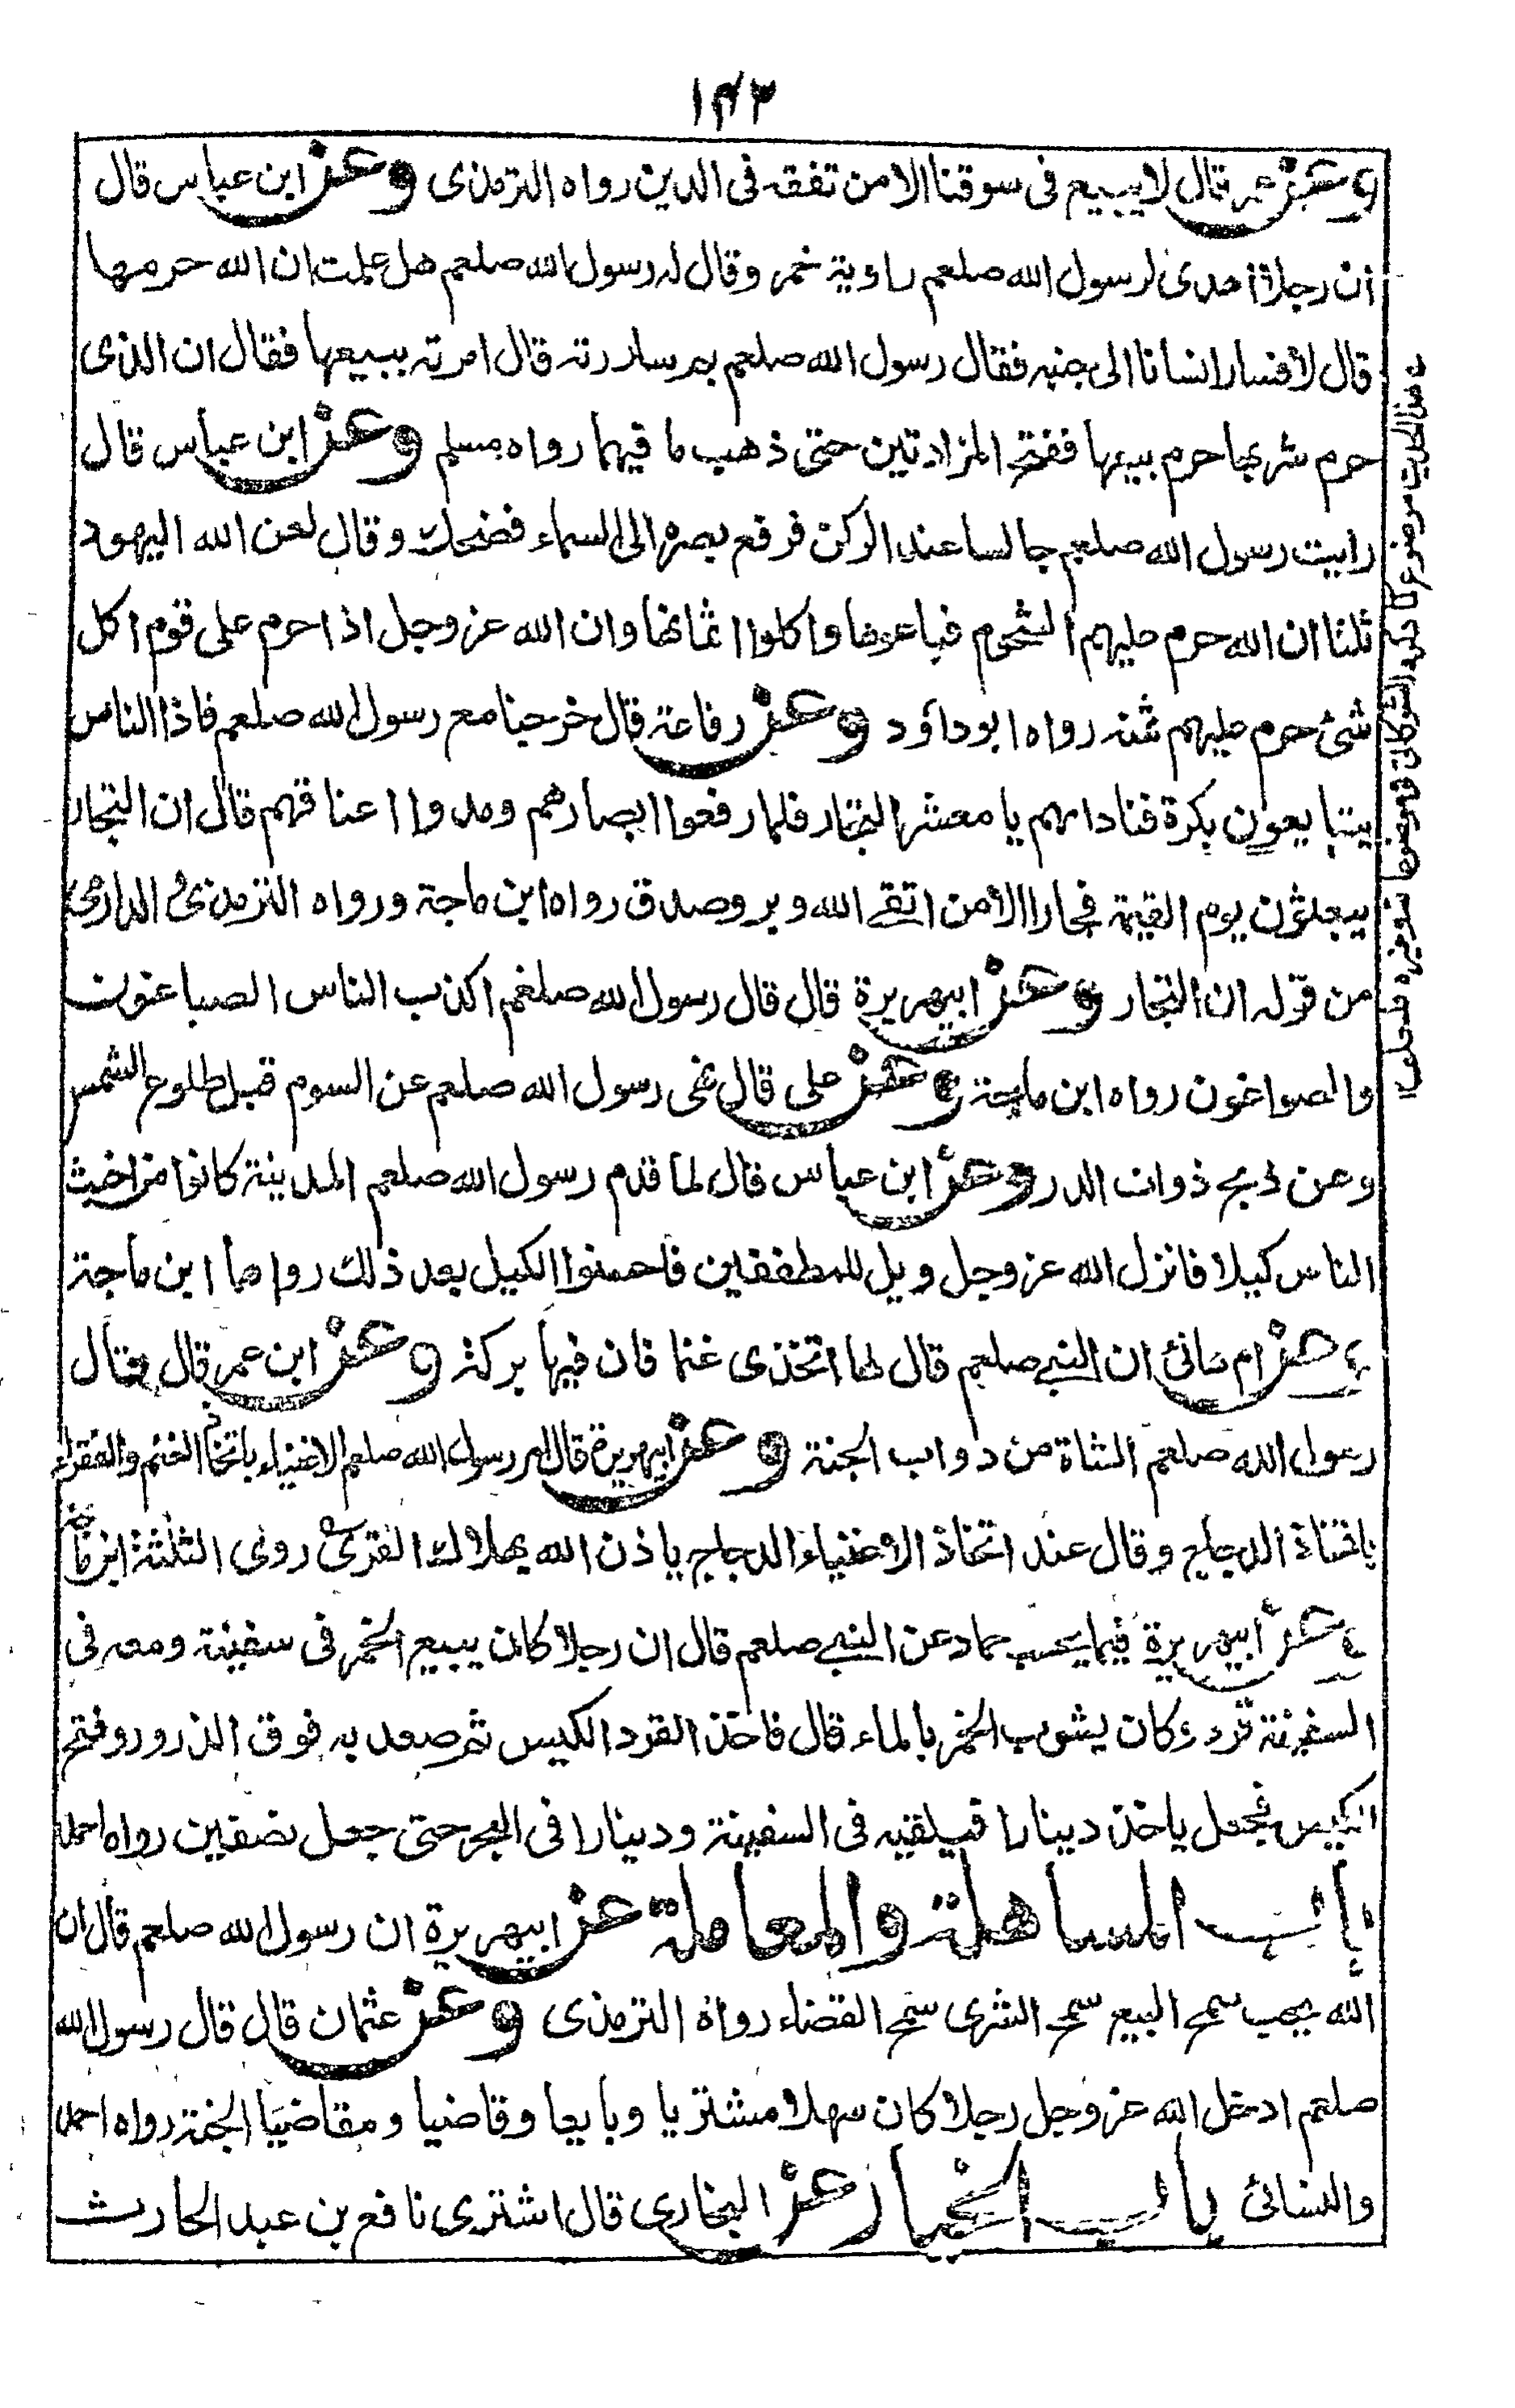 ۱۴۳
وعن عمر قال لا يبيع فى سوقنا الا من تفقه فى الدين رواه الترمذى وعن ابن عباس قال
ان رجلا اهدى لرسول الله صلعم راوية خمر وقال له رسول الله صلعم هل علمت ان الله حرمها
قال لا فسار انسانا الى جنبه فقال رسول الله صلعم بم ساررته قال امرته ببيعها فقال ان الذى
حرم شربها حرم بيعها ففتح المزادتين حتى ذهب ما فيهما رواه مسلم وعن ابن عباس قال
رايت رسول الله صلعم جالسا عند الركن فرفع بصره الى السماء فضحك وقال لعن الله اليهود
ثلثا ان الله حرم عليهم الشحوم فباعوها واكلوا اثمانها وان الله عز وجل اذا حرم على قوم اكل
شئ حرم عليهم ثمنه رواه ابو داؤد وعن رفاعة قال خرجنا مع رسول الله صلعم فاذا الناس
يتبايعون بكرة فناداهم يا معشر التجار فلما رفعوا ابصارهم ومدوا اعناقهم قال ان التجار
يبعثون يوم القيمة فجارا الا من اتقى الله وبر وصدق رواه ابن ماجة ورواه الترمذى والدارمى
من قوله ان التجار وعن ابيهريرة قال قال رسول الله صلعم اكذب الناس الصباغون
والصواغون رواه ابن ماجة وعن على قال نهى رسول الله صلعم عن السوم قبل طلوع الشمس
وعن ذبح ذوات الدر وعن ابن عباس قال لما قدم رسول الله صلعم المدينة كانوا من اخبث
الناس كيلا فانزل الله عز وجل ويل للمطففين فاحسنوا الكيل بعد ذلك رواهما ابن ماجة
وعن ام هانئ ان النبى صلعم قال لها اتخذى غنما فان فيها بركة وعن ابن عمر قال قال
رسول الله صلعم الشاة من دواب الجنة وعن ابيهريرة قال امر رسول الله صلعم الاغنياء باتخاذ الغنم والفقراء
باتخاذ الدجاج وقال عند اتخاذ الاغنياء الدجاج ياذن الله بهلاك القرى روى الثلثة ابن ماجة
وعن ابيهريرة فيما يحسب حماد عن النبى صلعم قال ان رجلا كان يبيع الخمر فى سفينة ومعه فى
السفينة قرد وكان يشوب الخمر بالماء قال فاخذ القرد الكيس ثم صعد به فوق الذرور وفتح
الكيس فجعل ياخذ دينارا فيلقيه فى السفينة ودينارا فى البحر حتى جعل نصفين رواه احمد
باب المساهلة والمعاملة عن ابيهريرة ان رسول الله صلعم قال ان
الله يحب سمح البيع سمح الشرى سمح القضاء رواه الترمذى وعن عثمان قال قال رسول الله
صلعم ادخل الله عز وجل رجلا كان سهلا مشتريا وبايعا وقاضيا ومقاضيا الجنة رواه احمد
والنسائى باب الخيار عن البخارى قال اشترى نافع بن عبد الحارث
هذا الحديث موضوع كما حكم الشوكانى